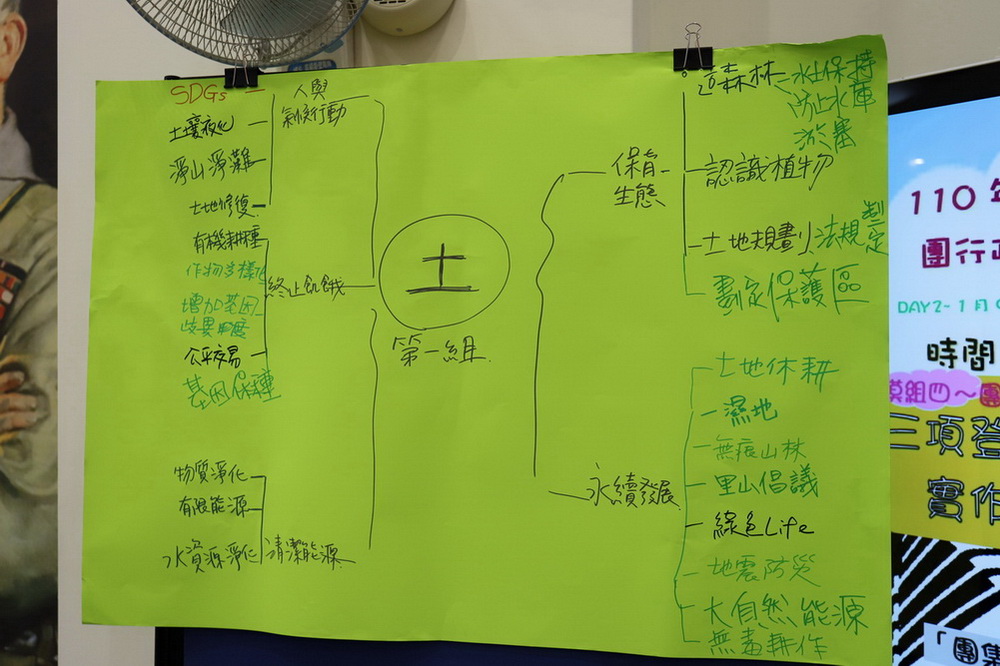 SDGs
人與
氣候行動
土壤液化
淨山淨灘
土地修復
有機耕種
作物多樣化
終止飢餓
增加基因
歧異度
公平交易
基因保種
物質淨化
有限能源
水資源淨化
清潔能源
土
第一組
保育
生態
造森林
水土保持
防止水庫
淤塞
認識植物
土地規劃
法規制定
劃定保護區
永續發展
土地休耕
濕地
無痕山林
里山倡議
綠色Life
地震防災
大自然能源
無毒耕作
110年
團行政
DAY2-1月
時間
模組四～團
三項登
實作
「團集